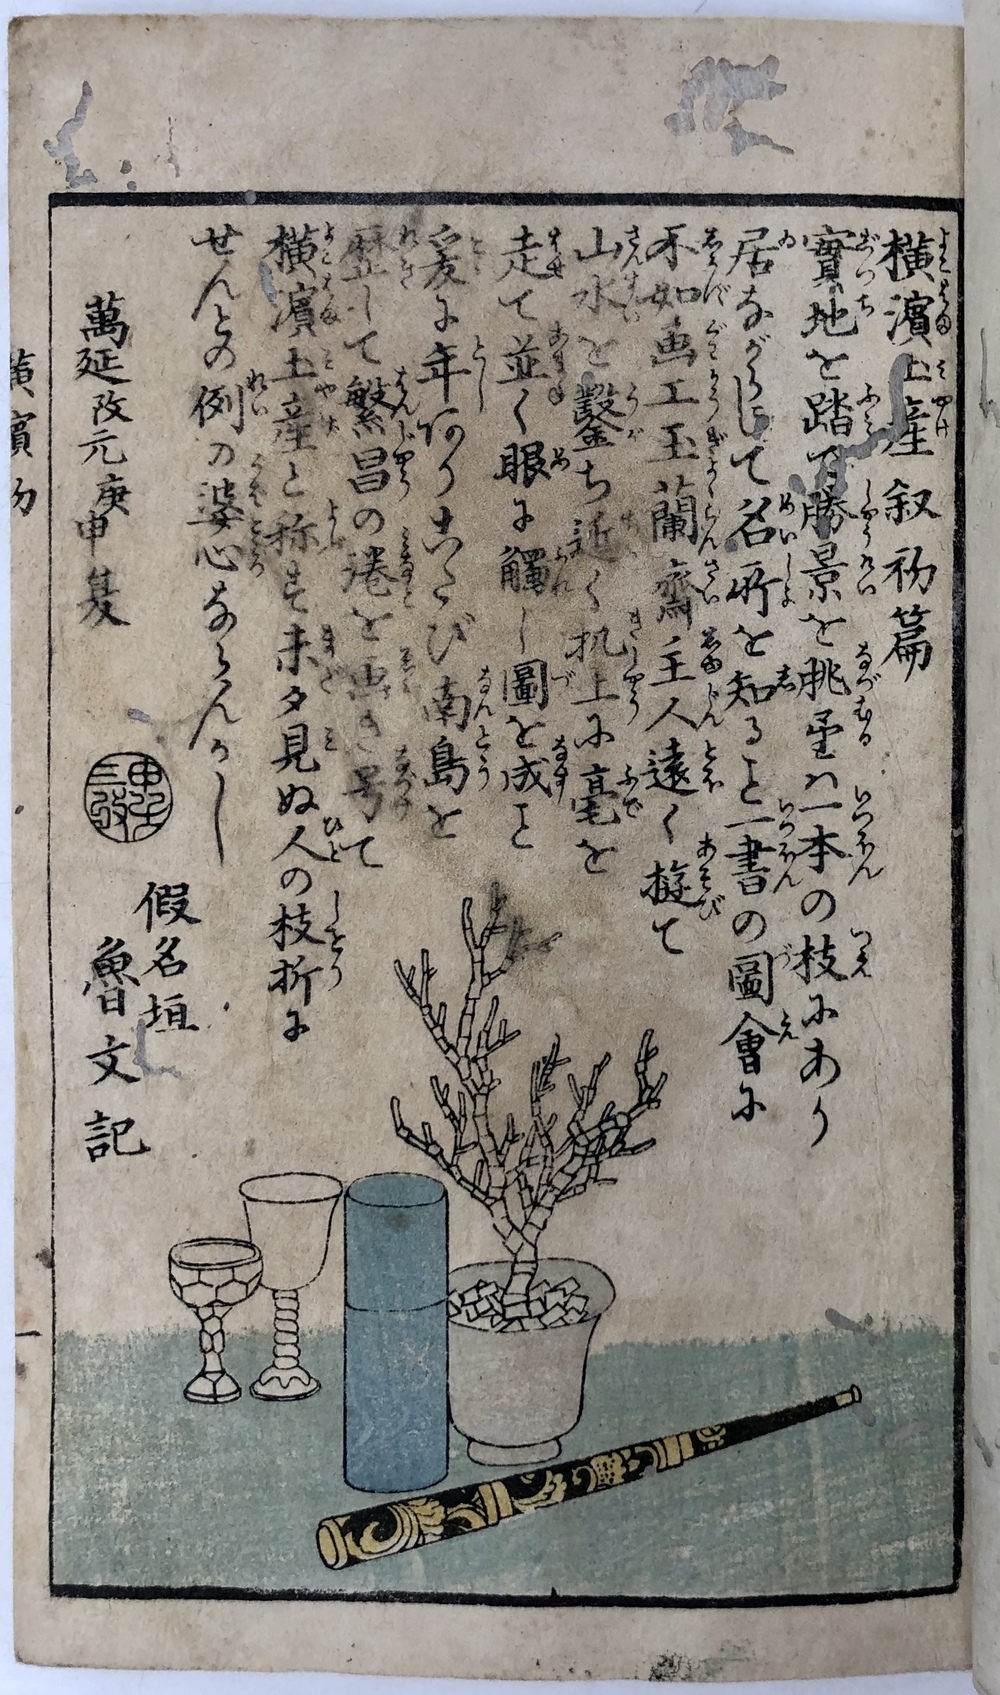 横濱土産叙初篇
實地を踏て勝景を眺望ハ一本の枝にあり
居ながらにして名所を知ること一書の圖會に
不如画工玉蘭齋主人遠く遊て
山水を鑿ち近く机上に毫を
走て並く眼に觸し圖を成こと
爰に年ありこたび南島を
歴して繁昌の港を画き号て
横濱土産と称す未タ見ぬ人の枝折に
せんとの例の婆心ならんかし
萬延改元庚申夏
假名垣
魯文記
横濱初